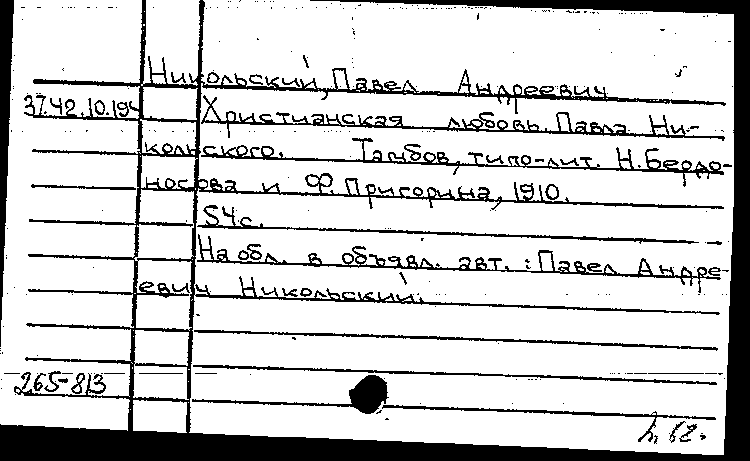 Никольский, Павел Андреевич
37.42.10.194 Христианская любовь. Павла Ни-
кольского. Тамбов, типо-лит. Н. Бердо-
носова и Ф. Пригорина, 1910.
54с.
На обл. в объявл. авт.: Павел Андре-
евич Никольский.
265-813
п. 62.